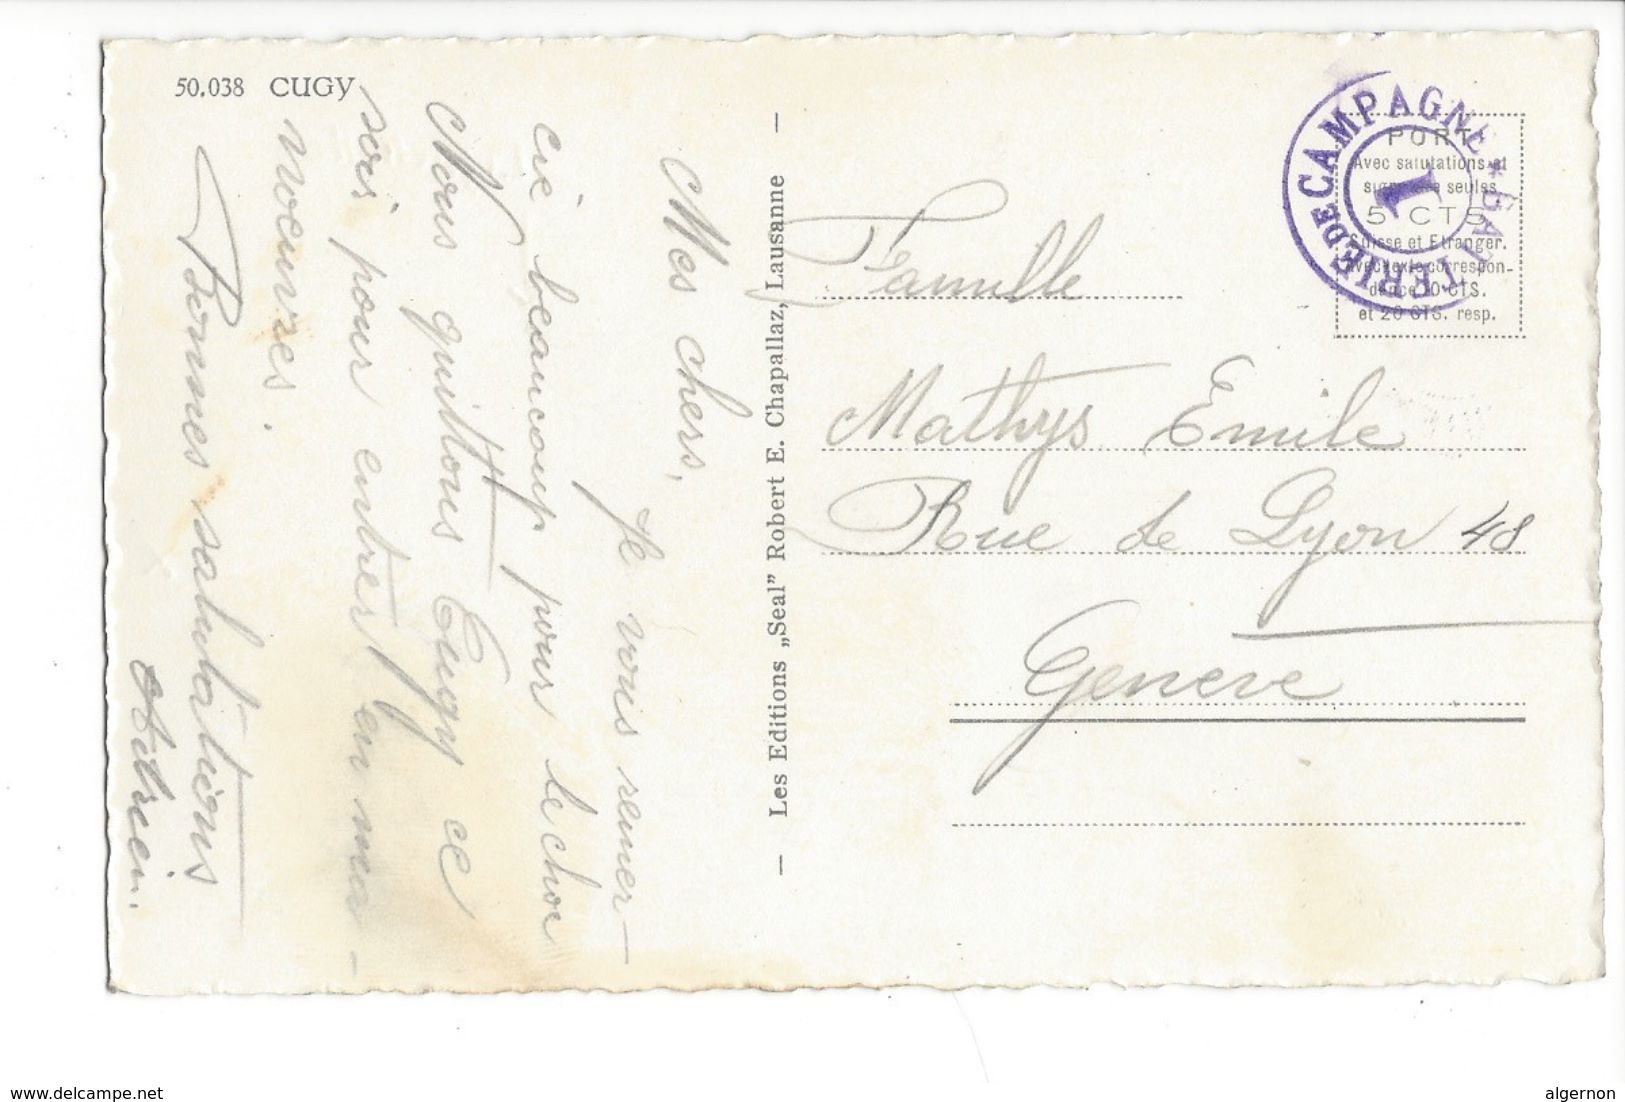 50.038 CUGY
Mes chers,
Je vous remer-
cie beaucoup pour le choc
Nous quittons Cugy ce
soir pour entrer en ma-
noeuvres.
Bonnes salutations
Adrien.
— Les Editions „Seal” Robert E. Chapallaz, Lausanne —
BATTERIE DE CAMPAGNE *
1
PORT
Avec salutations et
signature seules
5 CTS
Suisse et Etranger.
avec texte correspon-
dance 10 CTS.
et 20 CTS. resp.
Famille
Mathys Emile
Rue de Lyon 48
Genève
www.delcampe.net
algernon